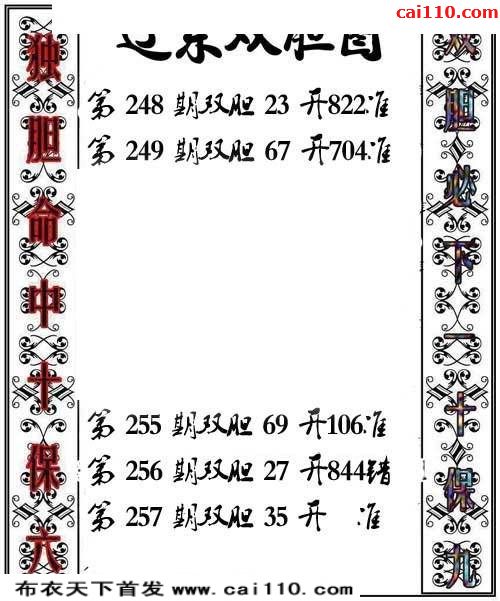 cai110.com
双胆图
第 248 期双胆 23 开822准
第 249 期双胆 67 开704准
第 255 期双胆 69 开106准
第 256 期双胆 27 开844错
第 257 期双胆 35 开 准
独胆命中十保六
双胆必下一十保九
布衣天下首发 www.cai110.com